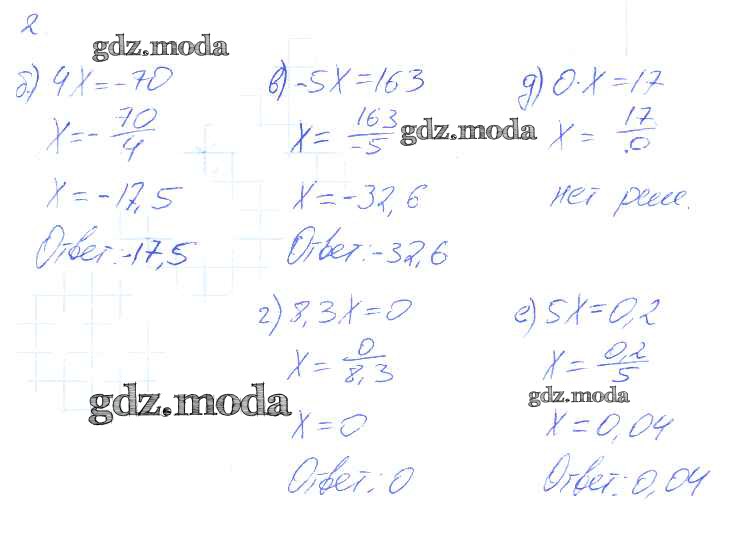 2
gdz.moda
б) 4x = -70
x = - 70/4
x = -17,5
Ответ: -17,5
в) -5x = 163
x = 163/-5
gdz.moda
x = -32,6
Ответ: -32,6
д) 0·x = 17
x = 17/0
нет реш.
г) 8,3x = 0
x = 0/8,3
gdz.moda
x = 0
Ответ: 0
е) 5x = 0,2
x = 0,2/5
gdz.moda
x = 0,04
Ответ: 0,04